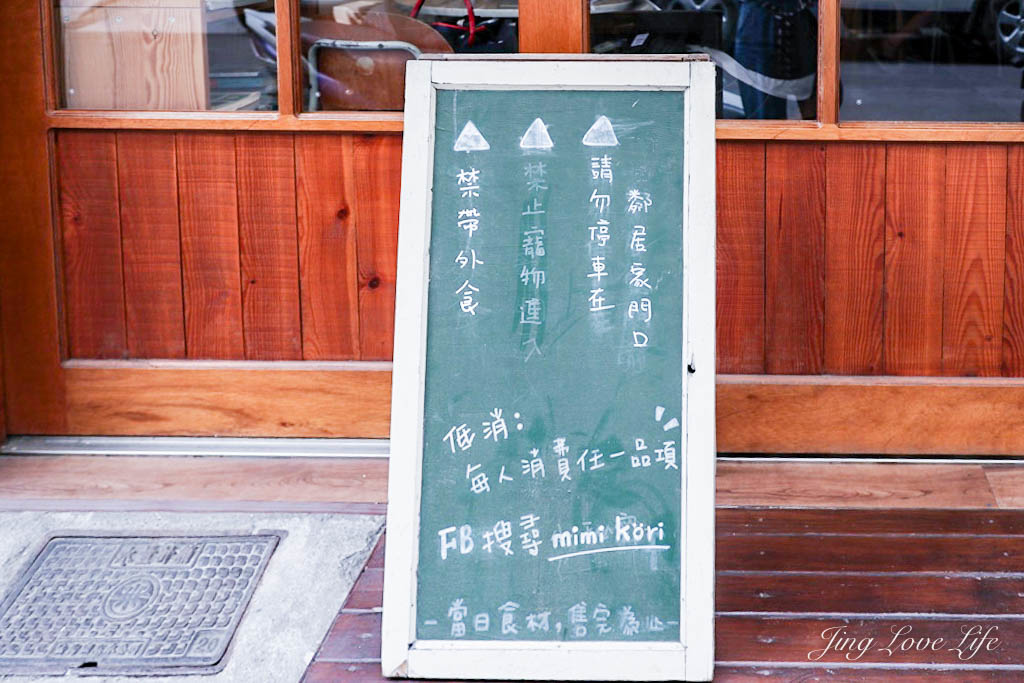 請勿停車在
鄰居家門口前
禁止寵物進入
禁帶外食
低消：
每人消費任一品項
FB搜尋 mimi köri
-當日食材，售完為止-
Jing Love Life